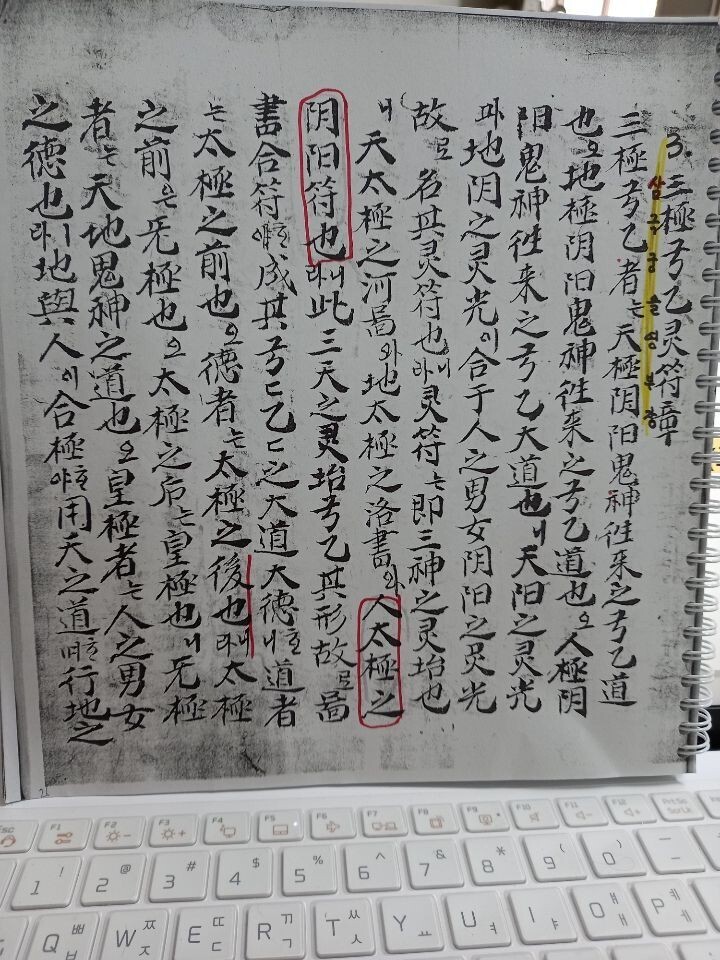 3. 三極弓乙灵符章
삼극궁을영부장
三極弓乙者는天極阴阳鬼神徃来之弓乙道
也오地極阴阳鬼神徃来之弓乙道也오人極阴
阳鬼神徃来之弓乙大道也니天阳之灵光
과地阴之灵光이合于人之男女阴阳之灵光
故로名其灵符也니라灵符는即三神之灵坮也
니天太極之河啚와地太極之洛書와人太極之
阴阳符也니라此三天之灵坮弓乙其形故로啚
書合符하야成其弓ㄷ乙ㄷ之大道大德하니道者
는太極之前也오德者는太極之後也니라太極
之前은无極也오太極之后는皇極也니无極
者는天地鬼神之道也오皇極者는人之男女
之德也니라地與人이合極하야用天之道하며行地之